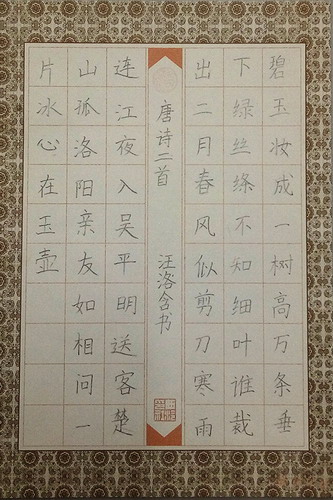 碧玉妆成一树高万条垂
下绿丝绦不知细叶谁裁
出二月春风似剪刀寒雨
唐诗二首 汪洛含书
连江夜入吴平明送客楚
山孤洛阳亲友如相问一
片冰心在玉壶